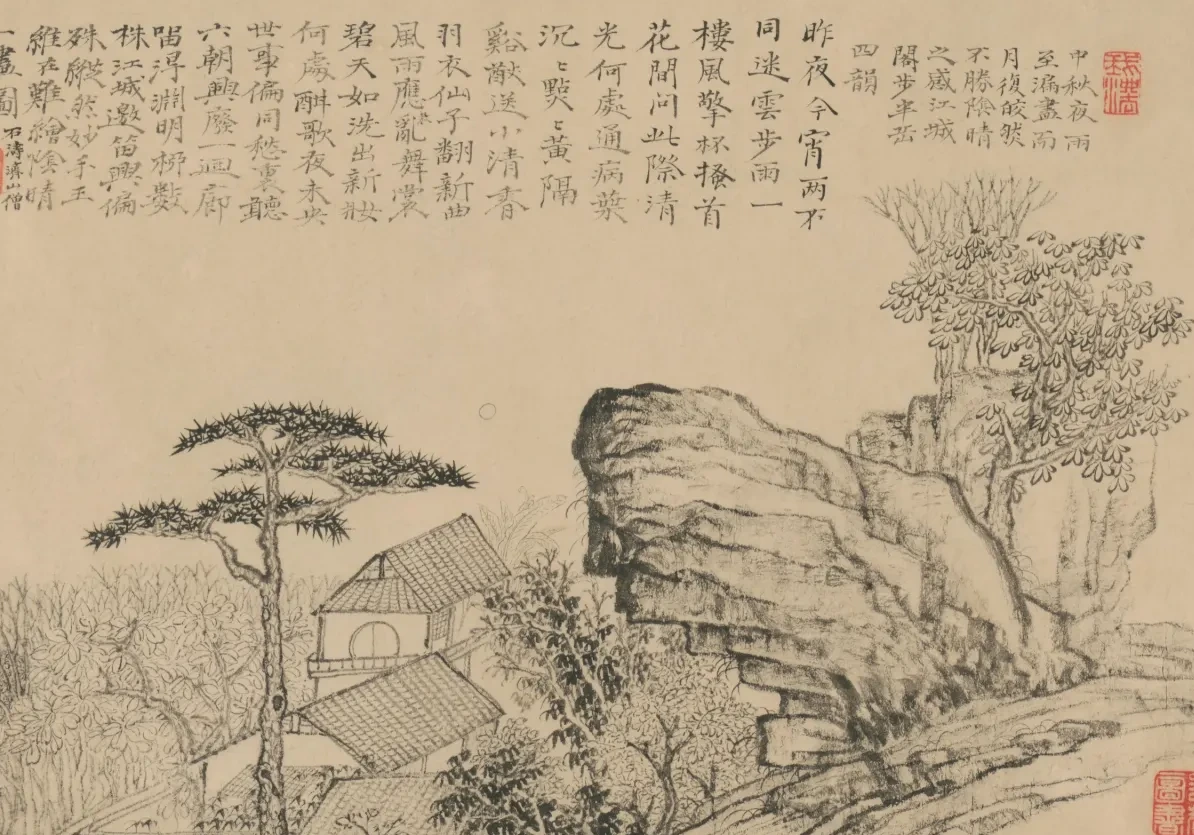 中秋夜雨
至漏盡而
月復皎然
不勝陰晴
之感江城
閣步
四韻
昨夜今宵兩不
同迷雲步雨一
樓風擎杯搔首
花間問此際清
光何處通病葉
沉〻點〻黄隔
谿送小清香
羽衣仙子翻新曲
風雨應亂舞裳
碧天如洗出新妝
何處酣歌夜未央
世事偏同愁裏聽
六朝興廢一迴廊
留得淵明栁數
株江城邀笛興偏
殊縱然妙手王
維在難繪陰晴
一畫圖
石濤濟山僧